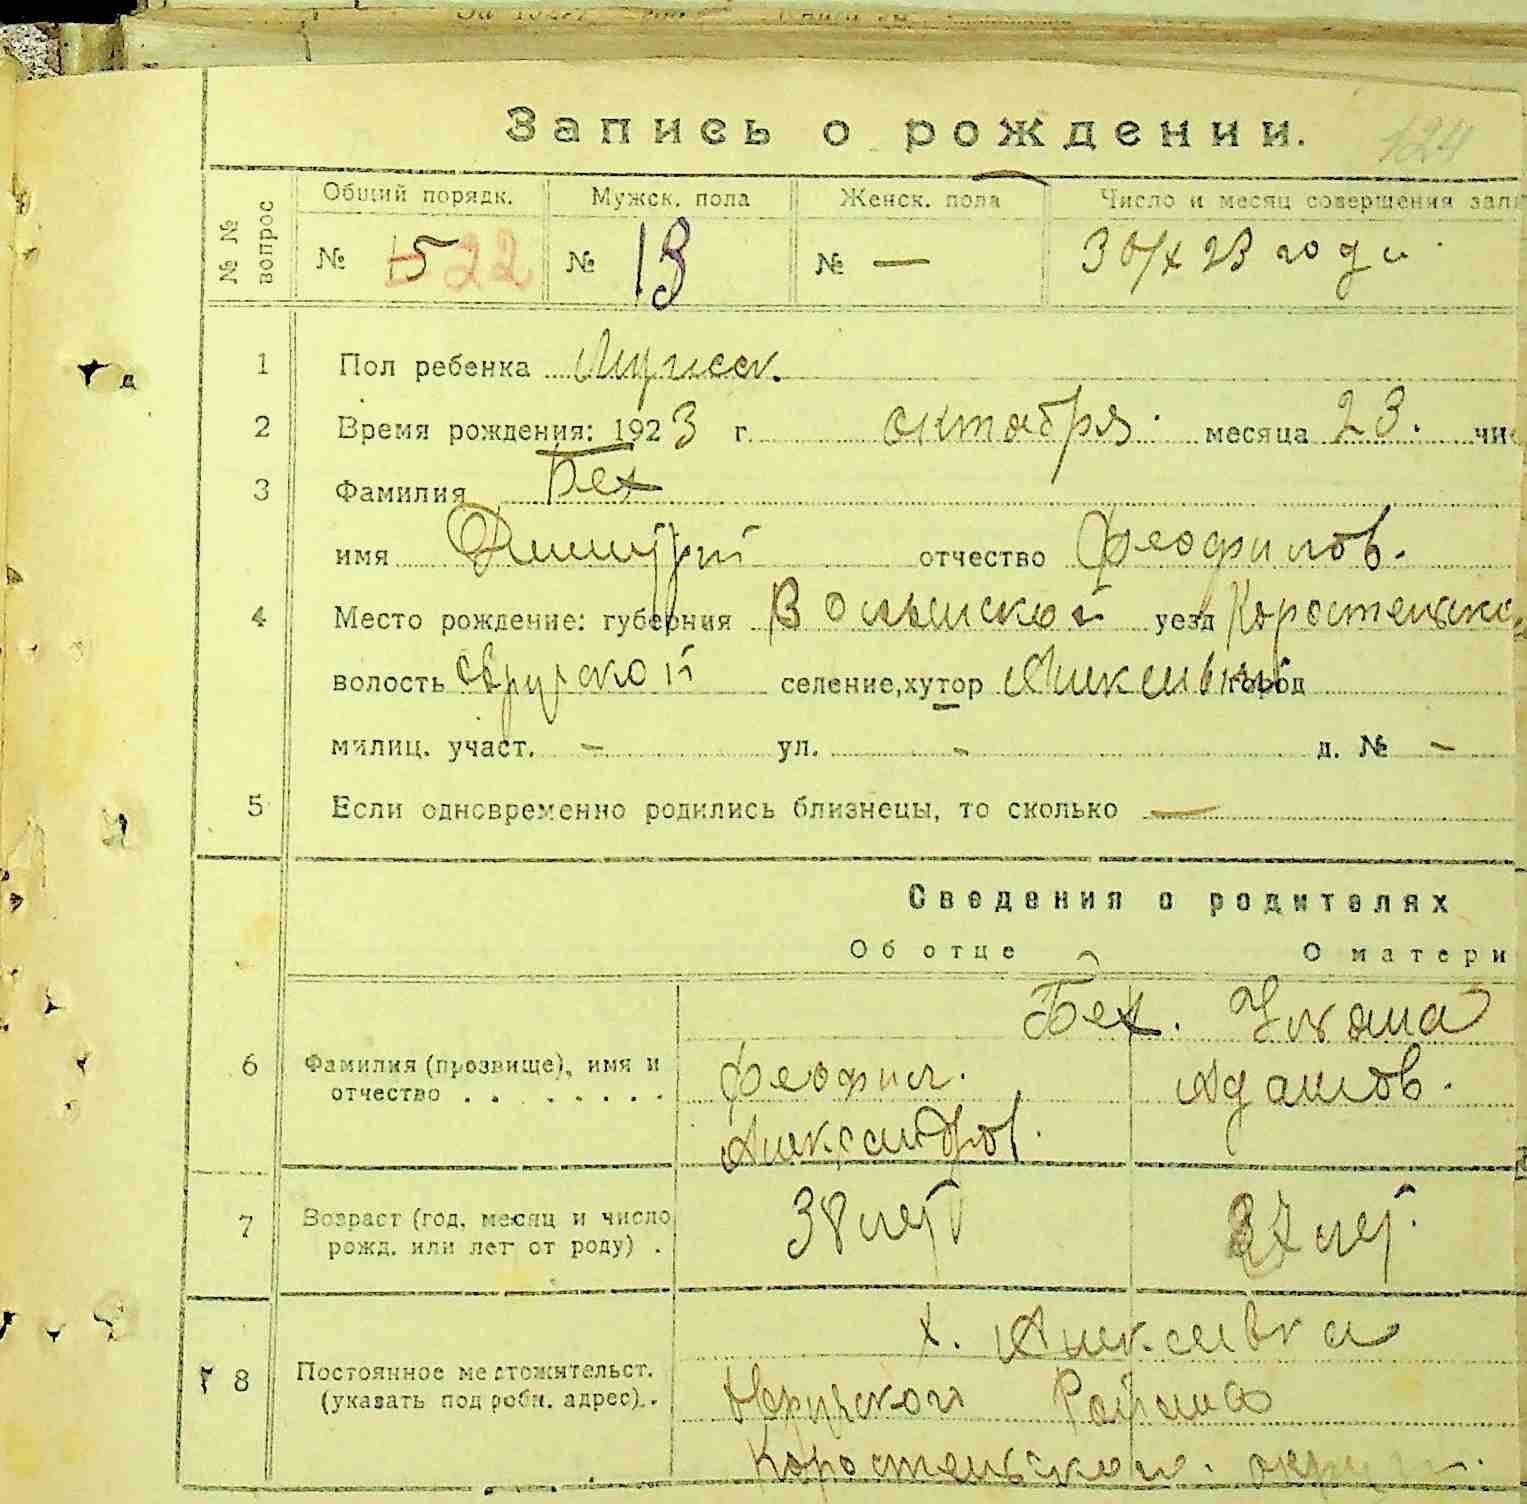 Запись о рождении.
124
№ № вопрос
Общий порядк. Мужск. пола Женск. пола Число и месяц совершения зап
№ 15 22 № 13 № — 30/X 23 года
1 Пол ребенка Мужск.
2 Время рождения: 1923 г. октября месяца 23. чис
3 Фамилия Бех
имя Димитрий отчество Феофилов.
4 Место рождение: губерния Волынской уезд Коростеньско
волость Овручской селение, хутор город
милиц. участ. - ул. - д. № -
5 Если одновременно родились близнецы, то сколько —
Сведения о родителях
Об отце О матери
Бех. Ульяна
6 Фамилия (прозвище), имя и отчество . . . . . . . .
Феофил. Адамов.
Александров.
7 Возраст (год, месяц и число рожд. или лет от роду) .
38 лет 37 лет.
8 Постоянное местожительст. (указать подробн. адрес). .
х. Алексеевка
Овручского Района
Коростеньского округа.